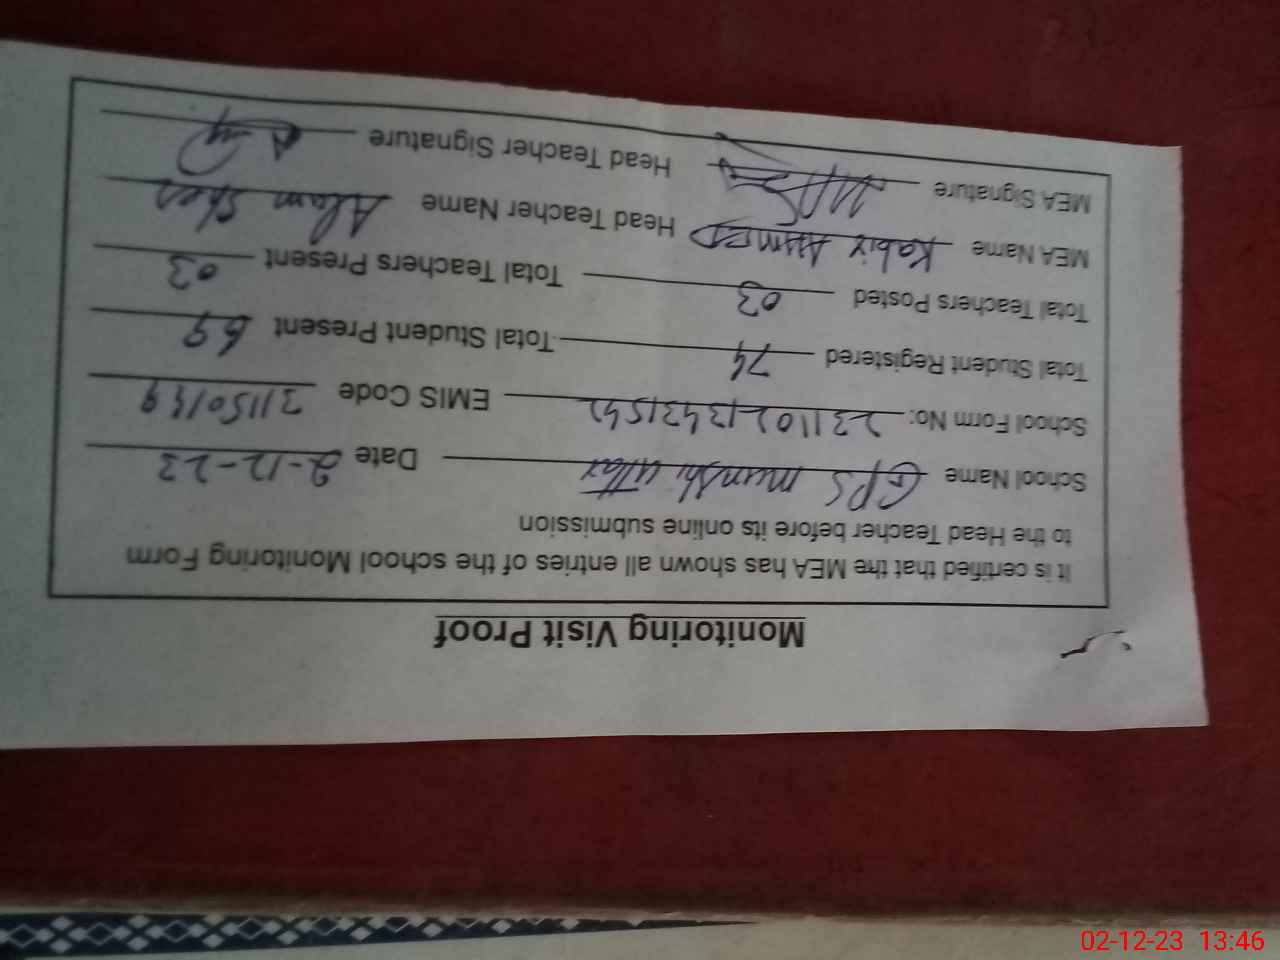 Monitoring Visit Proof
It is certified that the MEA has shown all entries of the school Monitoring Form
to the Head Teacher before its online submission
School Name GPS munshi uttar Date 2-12-23
School Form No: 23110213431542 EMIS Code 31150149
Total Student Registered 74 Total Student Present 69
Total Teachers Posted 03 Total Teachers Present 03
MEA Name Kabir AHMED Head Teacher Name Alam Sher
MEA Signature Head Teacher Signature
02-12-23 13:46